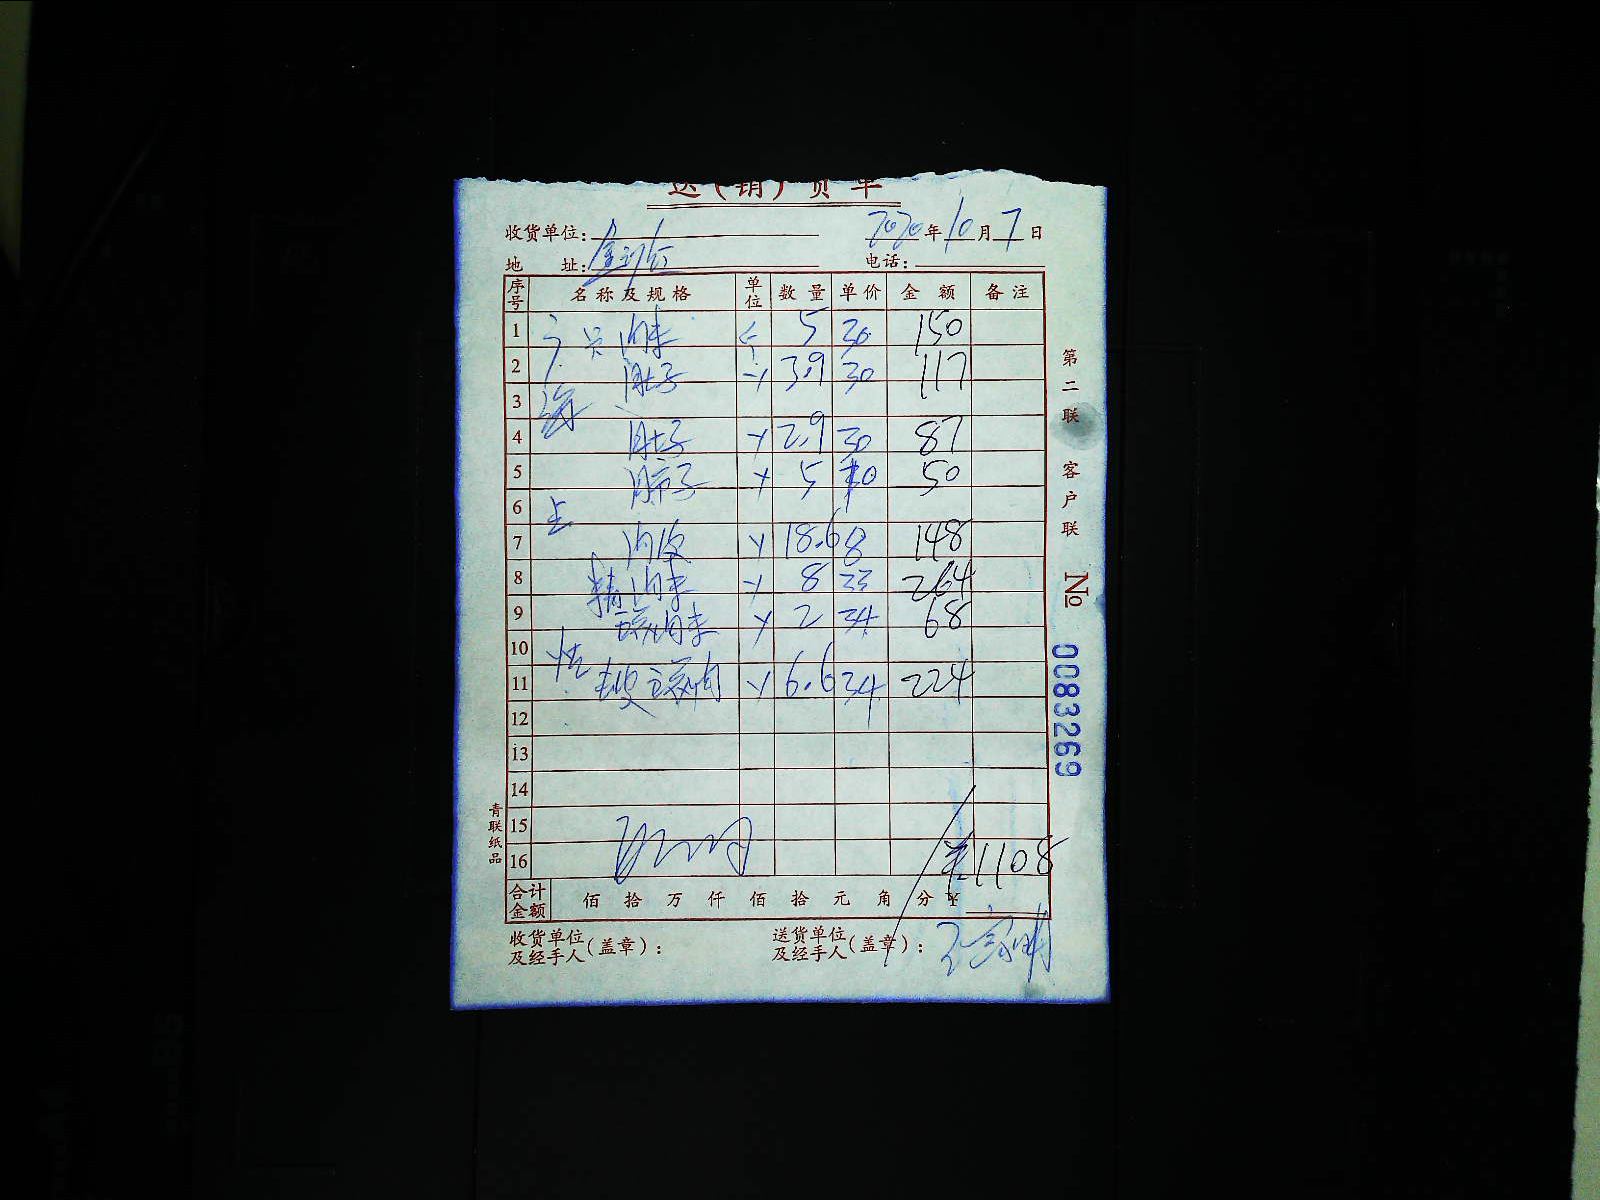 送(销)货单
收货单位:
2020年10月7日
地 址:
电话:
序号 名称及规格 单位 数量 单价 金额 备注
1 肉末 5 30 150
2 肚子 3.9 30 117
3
4 肚子 2.9 30 87
5 肺子 5 10 50
6 上
7 肉皮 18.6 8 148
8 精肉末 8 33 264
9 肉末 2 34 68
10
11 肉 6.6 34 224
12
13
14
15
16 ¥1108
合计金额 佰 拾 万 仟 佰 拾 元 角 分 ¥
收货单位及经手人(盖章):
送货单位及经手人(盖章):
第二联 客户联
No 0083269
青联纸品